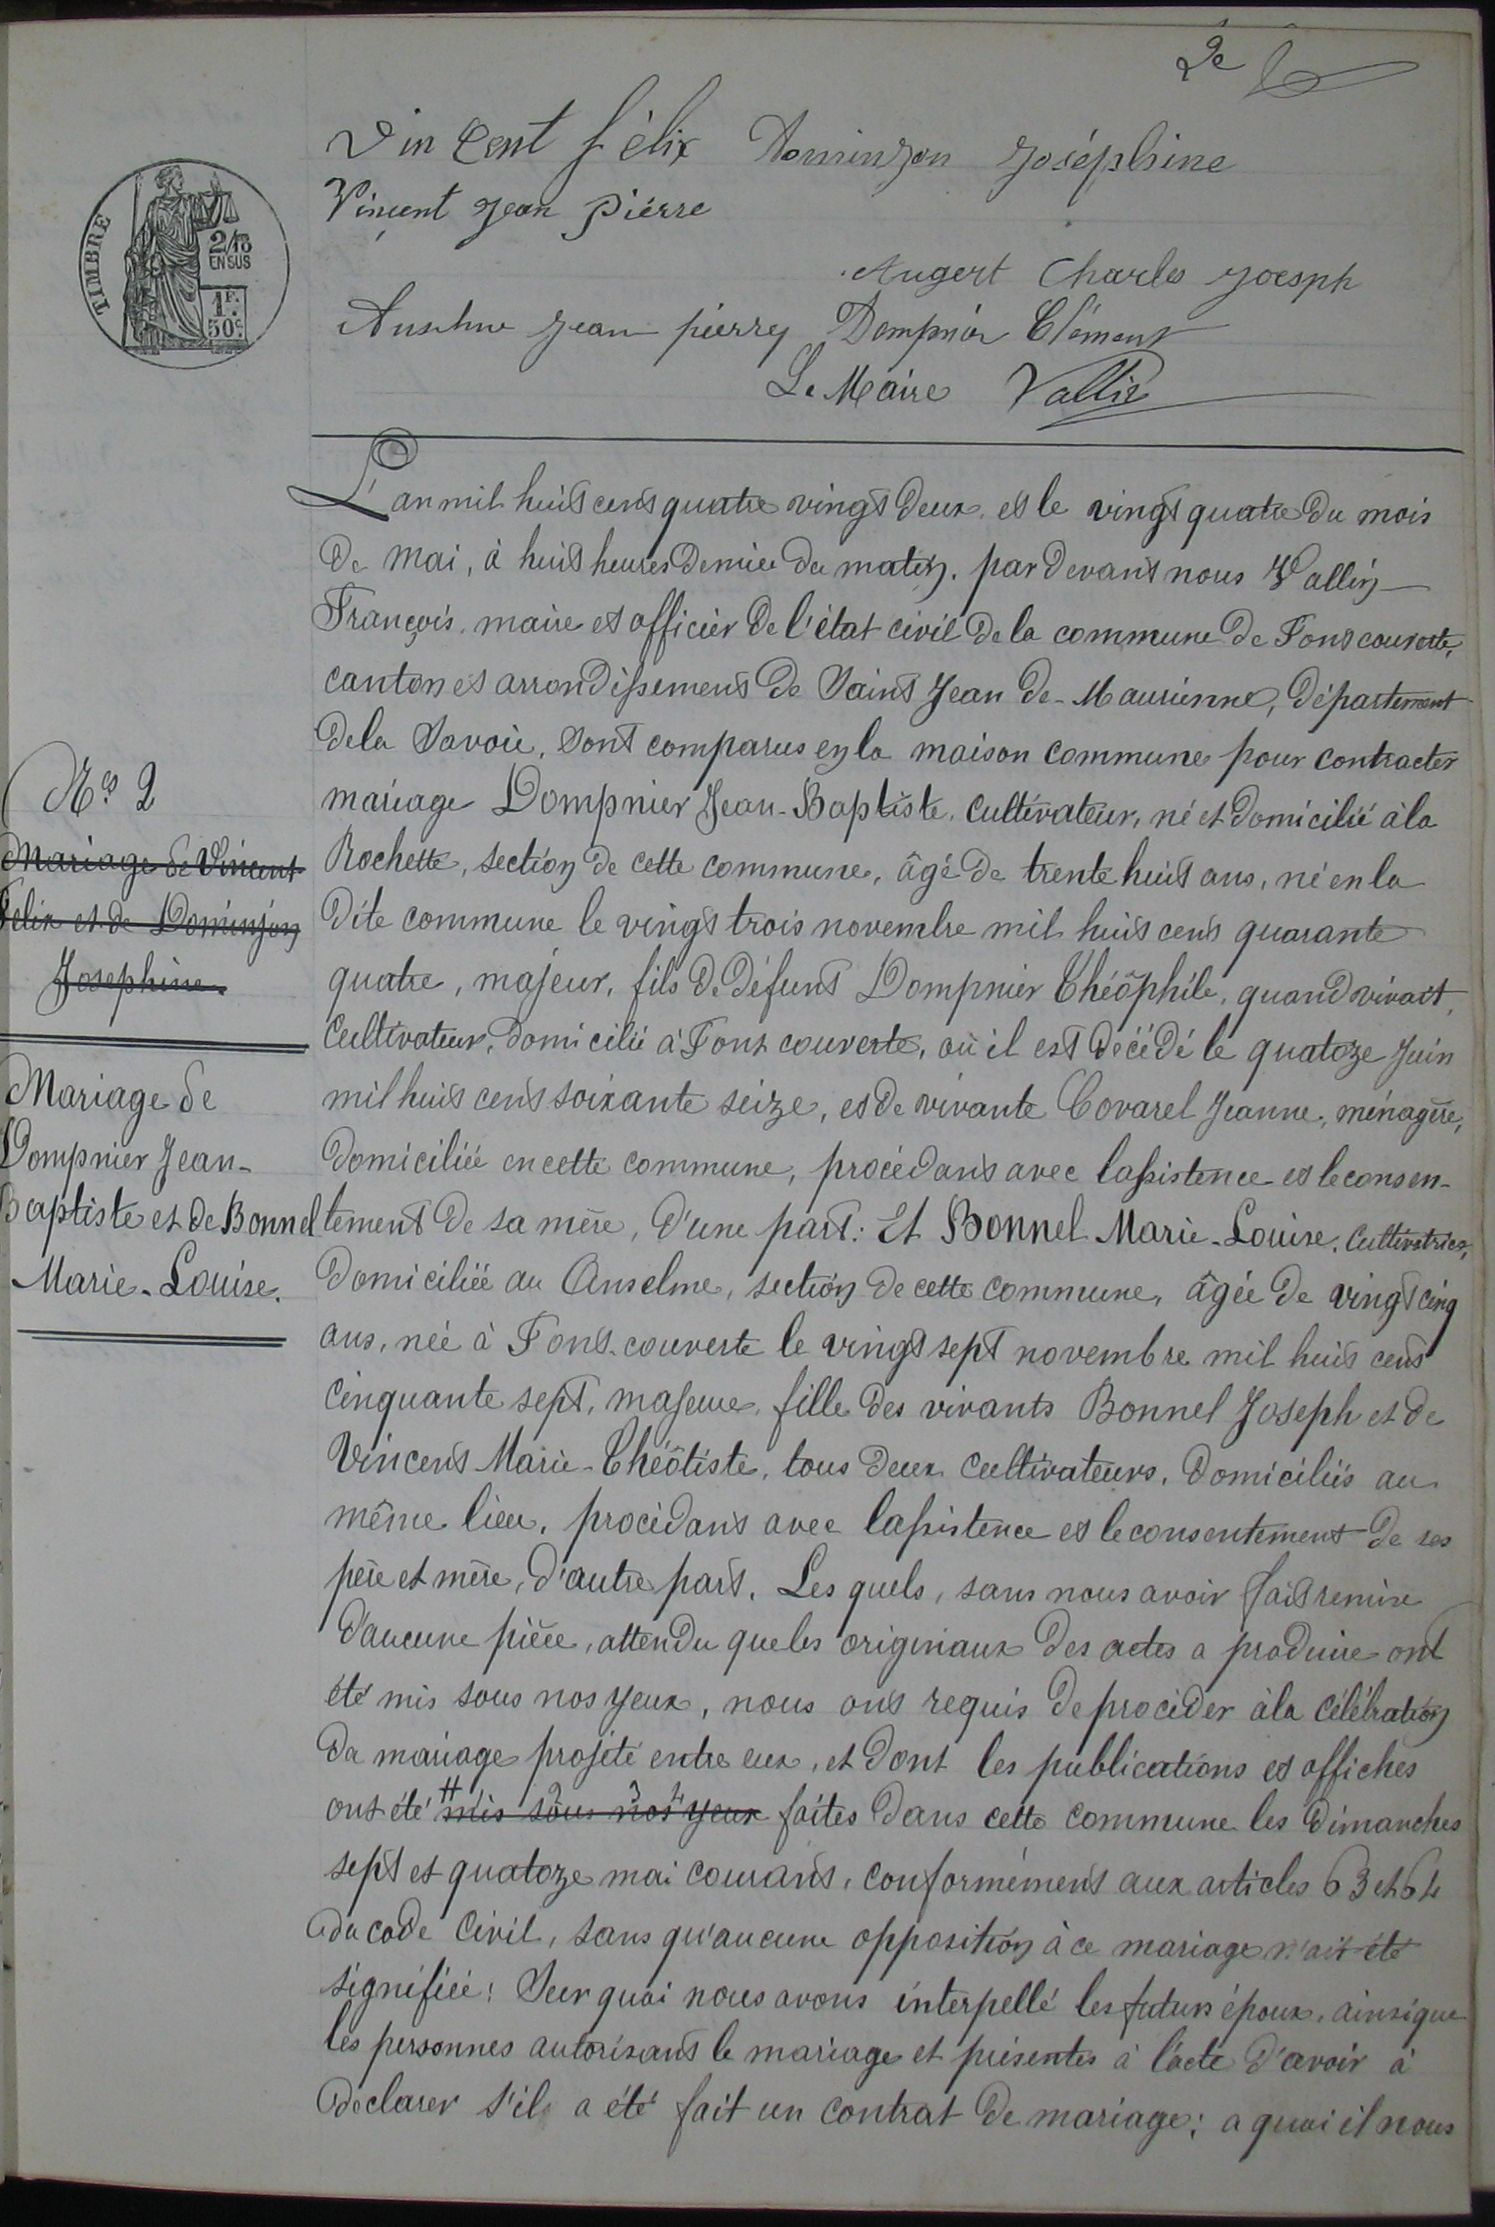 2e
Vincent félix Dominjon Joséphine
Vincent Jean Pierre
Augert Charles Joesph
Anselme Jean pierre Dompnier Clément
Le Maire Vallin
TIMBRE
2/10
EN SUS
1F.
50c.
L'an mil huit cent quatre vingt deux et le vingt quatre du mois
de mai, à huit heures demie du matin, par devant nous Vallin
François, maire et officier de l'état civil de la commune de Fontcouverte,
canton et arrondissement de Saint Jean de-Maurienne, département
de la Savoie, sont comparus en la maison commune pour contracter
mariage Dompnier Jean-Baptiste, cultivateur, né et domicilié à la
Rochette, section de cette commune, âgé de trente huit ans, né en la
dite commune le vingt trois novembre mil huit cent quarante
quatre, majeur, fils de défunt Dompnier Théôphile, quand vivait,
cultivateur, domicilié à Font couverte, où il est décédé le quatoze Juin
mil huit cent soixante seize, et de vivante Covarel Jeanne, ménagère,
domiciliée en cette commune, procédant avec lassistence et le consen-
tement de sa mère, d'une part: Et Bonnel Marie-Louise, cultivatrice,
domiciliée au Anselme, section de cette commune, âgée de vingt cinq
ans, née à Font-couverte le vingt sept novembre mil huit cent
cinquante sept, majeure, fille des vivants Bonnel Joseph et de
Vincent Marie-Théôtiste, tous deux cultivateurs, domiciliés au
même lieu, procédant avec lassistence et le consentement de ses
père et mère, d'autre part. Les quels, sans nous avoir fait remise
d'aucune pièce, attendu que les originaux des actes a produire ont
été mis sous nos yeux, nous ont requis de procéder à la célébration
du mariage projeté entre eux, et dont les publications et affiches
ont été # mis sous nos yeux faites dans cette commune les dimanches
sept et quatoze mai courant, conformément aux articles 63 et 64
du code civil, sans qu'aucune opposition à ce mariage n'ait été
signifiée: Sur quoi nous avons interpellé les futurs époux, ainsi que
les personnes autorisant le mariage et présentes à l'acte d'avoir à
déclarer s'il a été fait un contrat de mariage; a quoi il nous
No 2
Mariage de Vincent
Félix et de Dominjon
Josephine
Mariage de
Dompnier Jean-
Baptiste et de Bonnel
Marie-Louise.